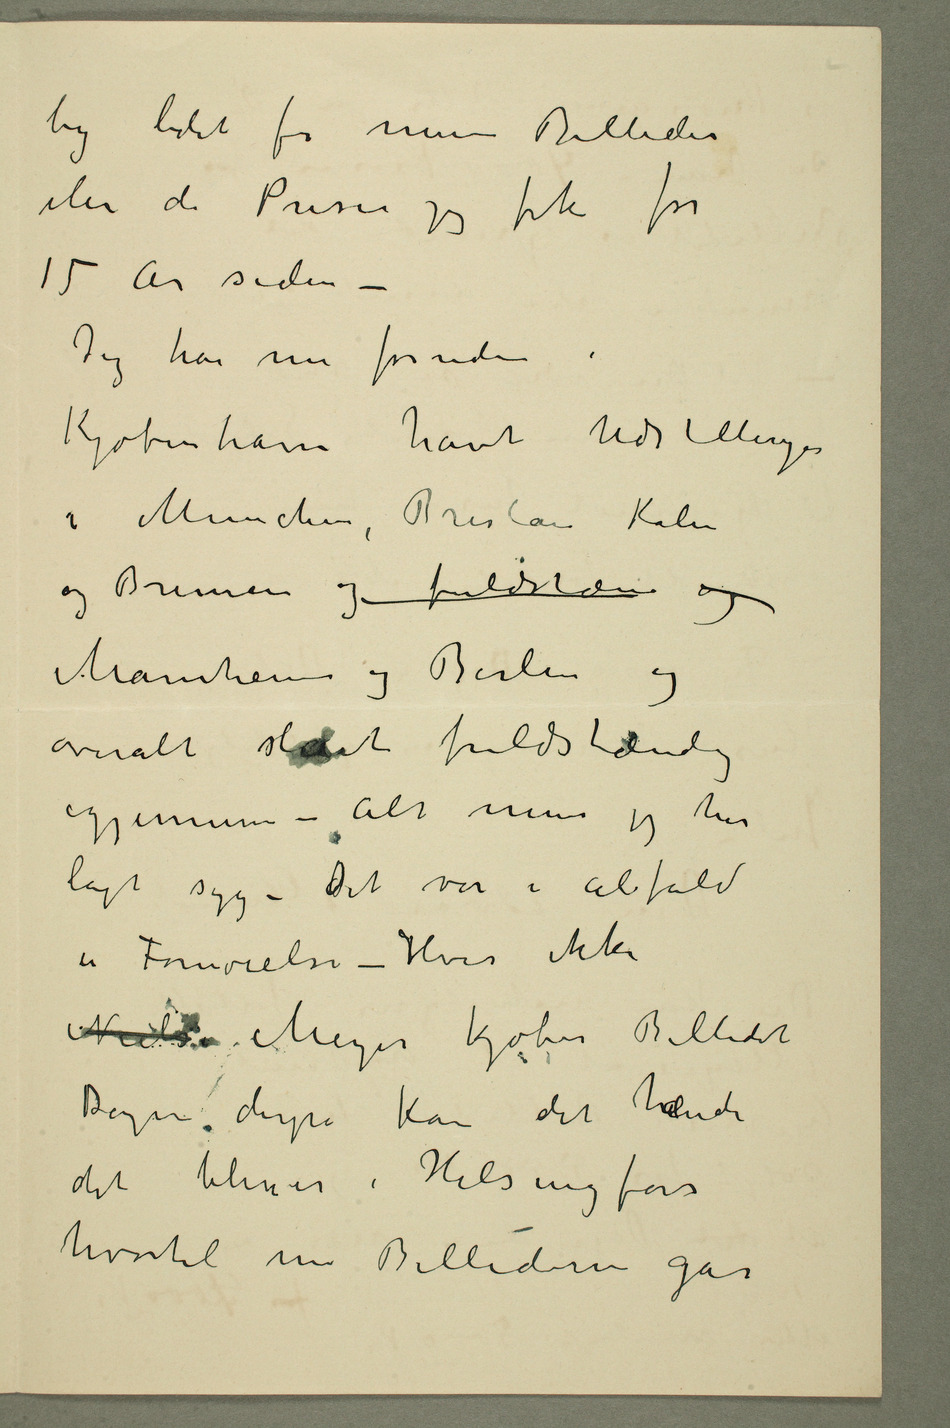 lig lidet for mine Billeder
eller de Priser jeg fik for
15 År siden –
Jeg har nu foruden i
Kjøbenhavn havt Udstillinger
i München, Breslau Køln
og Bremen og fuldstæn og
Manheim og Berlin og
overalt slaat fuldstændig
igjennem – Alt mens jeg har
lagt syg – Det var i alfald
en Fornøielse – Hvis ikke
Niels Meyer kjøber Billedet
Dagen derpå kan det hænde
det bliver i Helsingfors
hvortil nu Billederne går